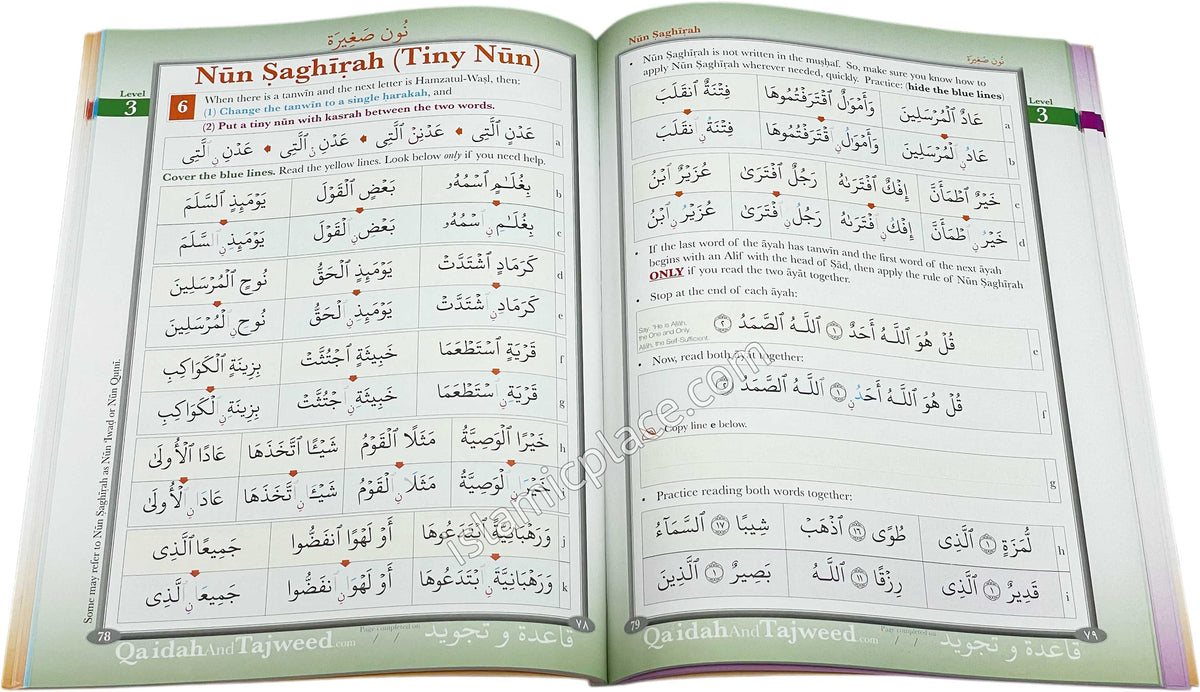 نُون صَغِيرَة
Nūn Ṣaghīrah (Tiny Nūn)
Level
3
6
When there is a tanwīn and the next letter is Hamzatul-Waṣl, then:
(1) Change the tanwīn to a single ḥarakah, and
(2) Put a tiny nūn with kasrah between the two words.
عَدْنٍ ٱلَّتِى عَدْنِنِ ٱلَّتِى عَدْنِ ن ٱلَّتِى عَدْنِ ن ٱلَّتِى a
Cover the blue lines. Read the yellow lines. Look below only if you need help.
بِغُلَـٰمٍ ٱسْمُهُۥ بَعْضٍ ٱلْقَوْلَ يَوْمَئِذٍ ٱلسَّلَمَ b
بِغُلَـٰمِ ن ٱسْمُهُۥ بَعْضِ ن ٱلْقَوْلَ يَوْمَئِذِ ن ٱلسَّلَمَ c
كَرَمَادٍ ٱشْتَدَّتْ يَوْمَئِذٍ ٱلْحَقُّ نُوحٍ ٱلْمُرْسَلِينَ d
كَرَمَادِ ن ٱشْتَدَّتْ يَوْمَئِذِ ن ٱلْحَقُّ نُوحِ ن ٱلْمُرْسَلِينَ e
قَرْيَةٍ ٱسْتَطْعَمَا خَبِيثَةٍ ٱجْتُثَّتْ بِزِينَةٍ ٱلْكَوَاكِبِ f
قَرْيَةِ ن ٱسْتَطْعَمَا خَبِيثَةِ ن ٱجْتُثَّتْ بِزِينَةِ ن ٱلْكَوَاكِبِ g
خَيْرًا ٱلْوَصِيَّةُ مَثَلًا ٱلْقَوْمُ شَيْـًٔا ٱتَّخَذَهَا عَادًا ٱلْأُولَىٰ h
خَيْرَ ن ٱلْوَصِيَّةُ مَثَلَا ن ٱلْقَوْمُ شَيْـَٔا ن ٱتَّخَذَهَا عَادَ ن ٱلْأُولَىٰ i
وَرَهْبَانِيَّةً ٱبْتَدَعُوهَا أَوْ لَهْوًا ٱنفَضُّوا جَمِيعًا ٱلَّذِى j
وَرَهْبَانِيَّةَ ن ٱبْتَدَعُوهَا أَوْ لَهْوَا ن ٱنفَضُّوا جَمِيعَا ن ٱلَّذِى k
Some may refer to Nūn Ṣaghīrah as Nūn ʿIwaḍ or Nūn Quṭnī.
78
Page completed on
٧٨
QaidahAndTajweed.com قاعدة و تجويد
Nūn Ṣaghīrah
نُون صَغِيرَة
• Nūn Ṣaghīrah is not written in the muṣḥaf. So, make sure you know how to
apply Nūn Ṣaghīrah wherever needed, quickly. Practice: (hide the blue lines)
Level
3
عَادٌ ٱلْمُرْسَلِينَ وَأَمْوَٰلٌ ٱقْتَرَفْتُمُوهَا فِتْنَةٌ ٱنقَلَبَ a
عَادُ ن ٱلْمُرْسَلِينَ وَأَمْوَٰلُ ن ٱقْتَرَفْتُمُوهَا فِتْنَةُ ن ٱنقَلَبَ b
خَيْرٌ ٱطْمَأَنَّ إِفْكٌ ٱفْتَرَىٰهُ رَجُلٌ ٱفْتَرَىٰ عُزَيْرٌ ٱبْنُ c
خَيْرُ ن ٱطْمَأَنَّ إِفْكُ ن ٱفْتَرَىٰهُ رَجُلُ ن ٱفْتَرَىٰ عُزَيْرُ ن ٱبْنُ d
• If the last word of the āyah has tanwīn and the first word of the next āyah
begins with an Alif with the head of Ṣād, then apply the rule of Nūn Ṣaghīrah
ONLY if you read the two āyāt together.
• Stop at the end of each āyah:
Say: "He is Allāh,
the One and Only.
Allāh, the Self-Sufficient.
قُلْ هُوَ ٱللَّـهُ أَحَدٌ ١ ٱللَّـهُ ٱلصَّمَدُ ٢ e
• Now, read both āyāt together:
قُلْ هُوَ ٱللَّـهُ أَحَدُ ن ١ ٱللَّـهُ ٱلصَّمَدُ ٢ f
Copy line e below.
g
• Practice reading both words together:
لُّمَزَةٍ ١ ٱلَّذِى طُوًى ١٦ ٱذْهَبْ شِيبًا ١٧ ٱلسَّمَآءُ h
قَدِيرٌ ١ ٱلَّذِى رِزْقًا ١١ ٱللَّـهُ بَصِيرٌ ٱلَّذِينَ i
79
Page completed on
٧٩
QaidahAndTajweed.com قاعدة و تجويد
islamicplace.com